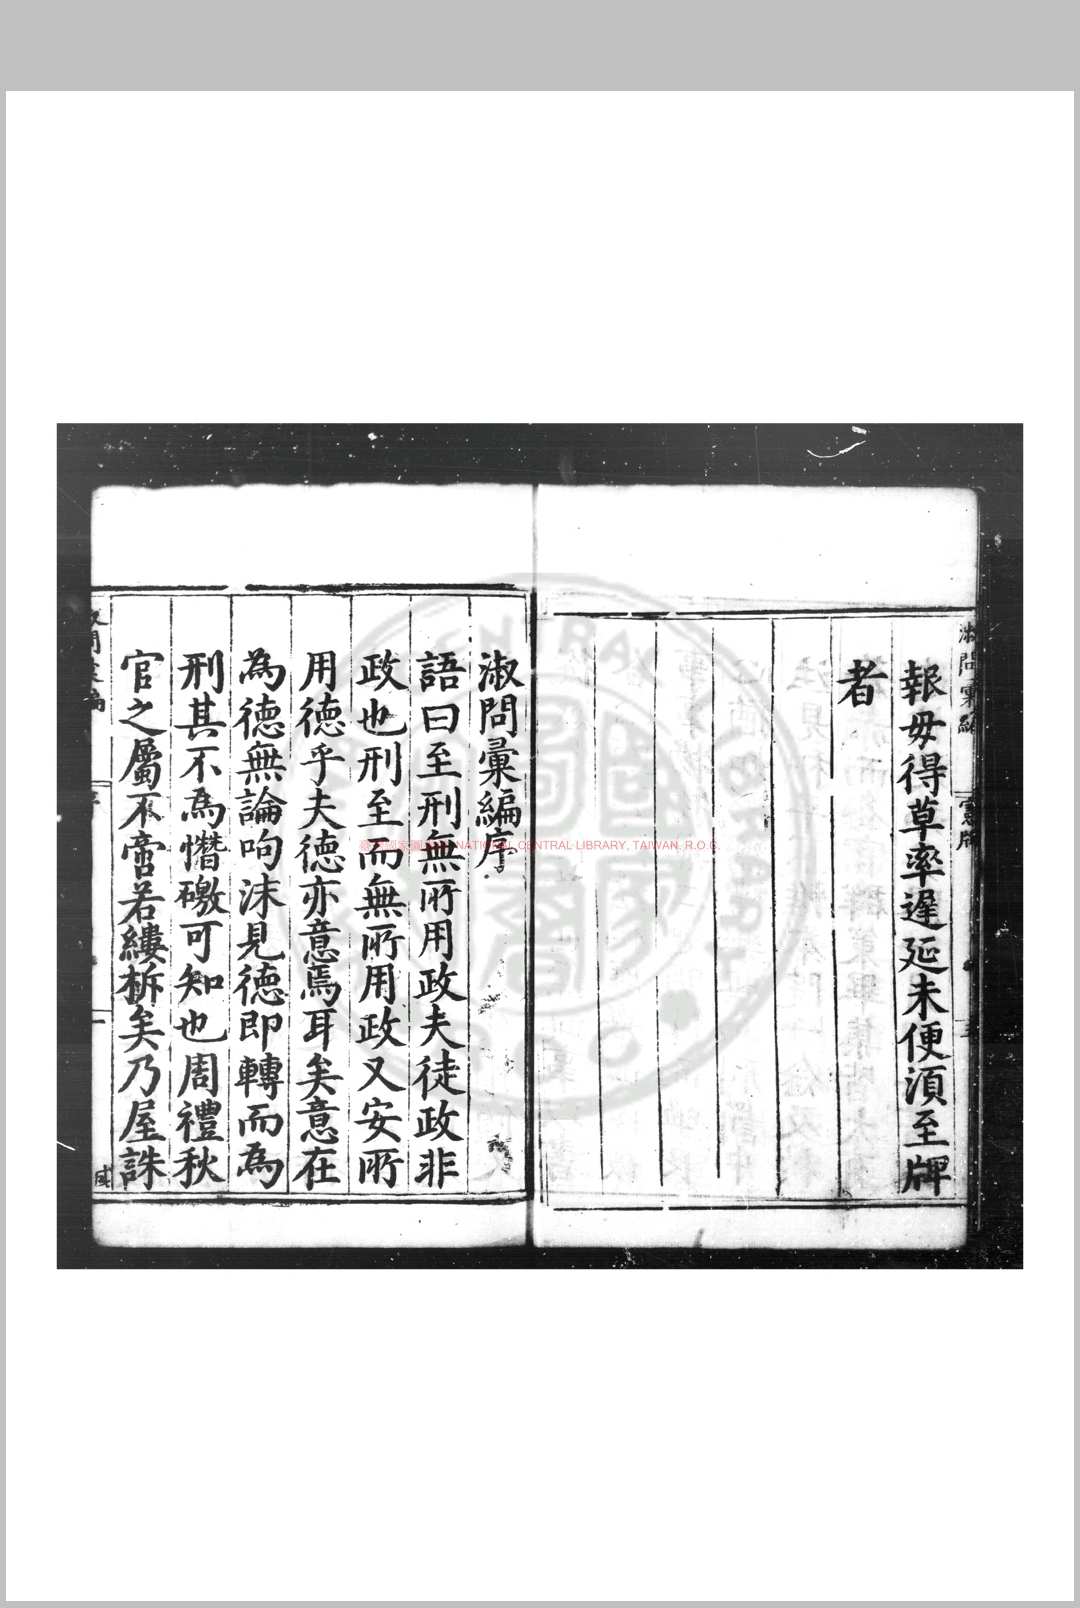 淑問彙編
憲牌
報毋得草率遲延未便湏至牌
者
淑問彙編序
語曰至刑無所用政夫徒政非
政也刑至而無所用政又安所
用德乎夫德亦意焉耳矣意在
為德無論呴沫見德即轉而為
刑其不為憯礉可知也周禮秋
官之屬不啻若縷柝矣乃屋誅
NATIONAL CENTRAL LIBRARY, TAIWAN, R.O.C.